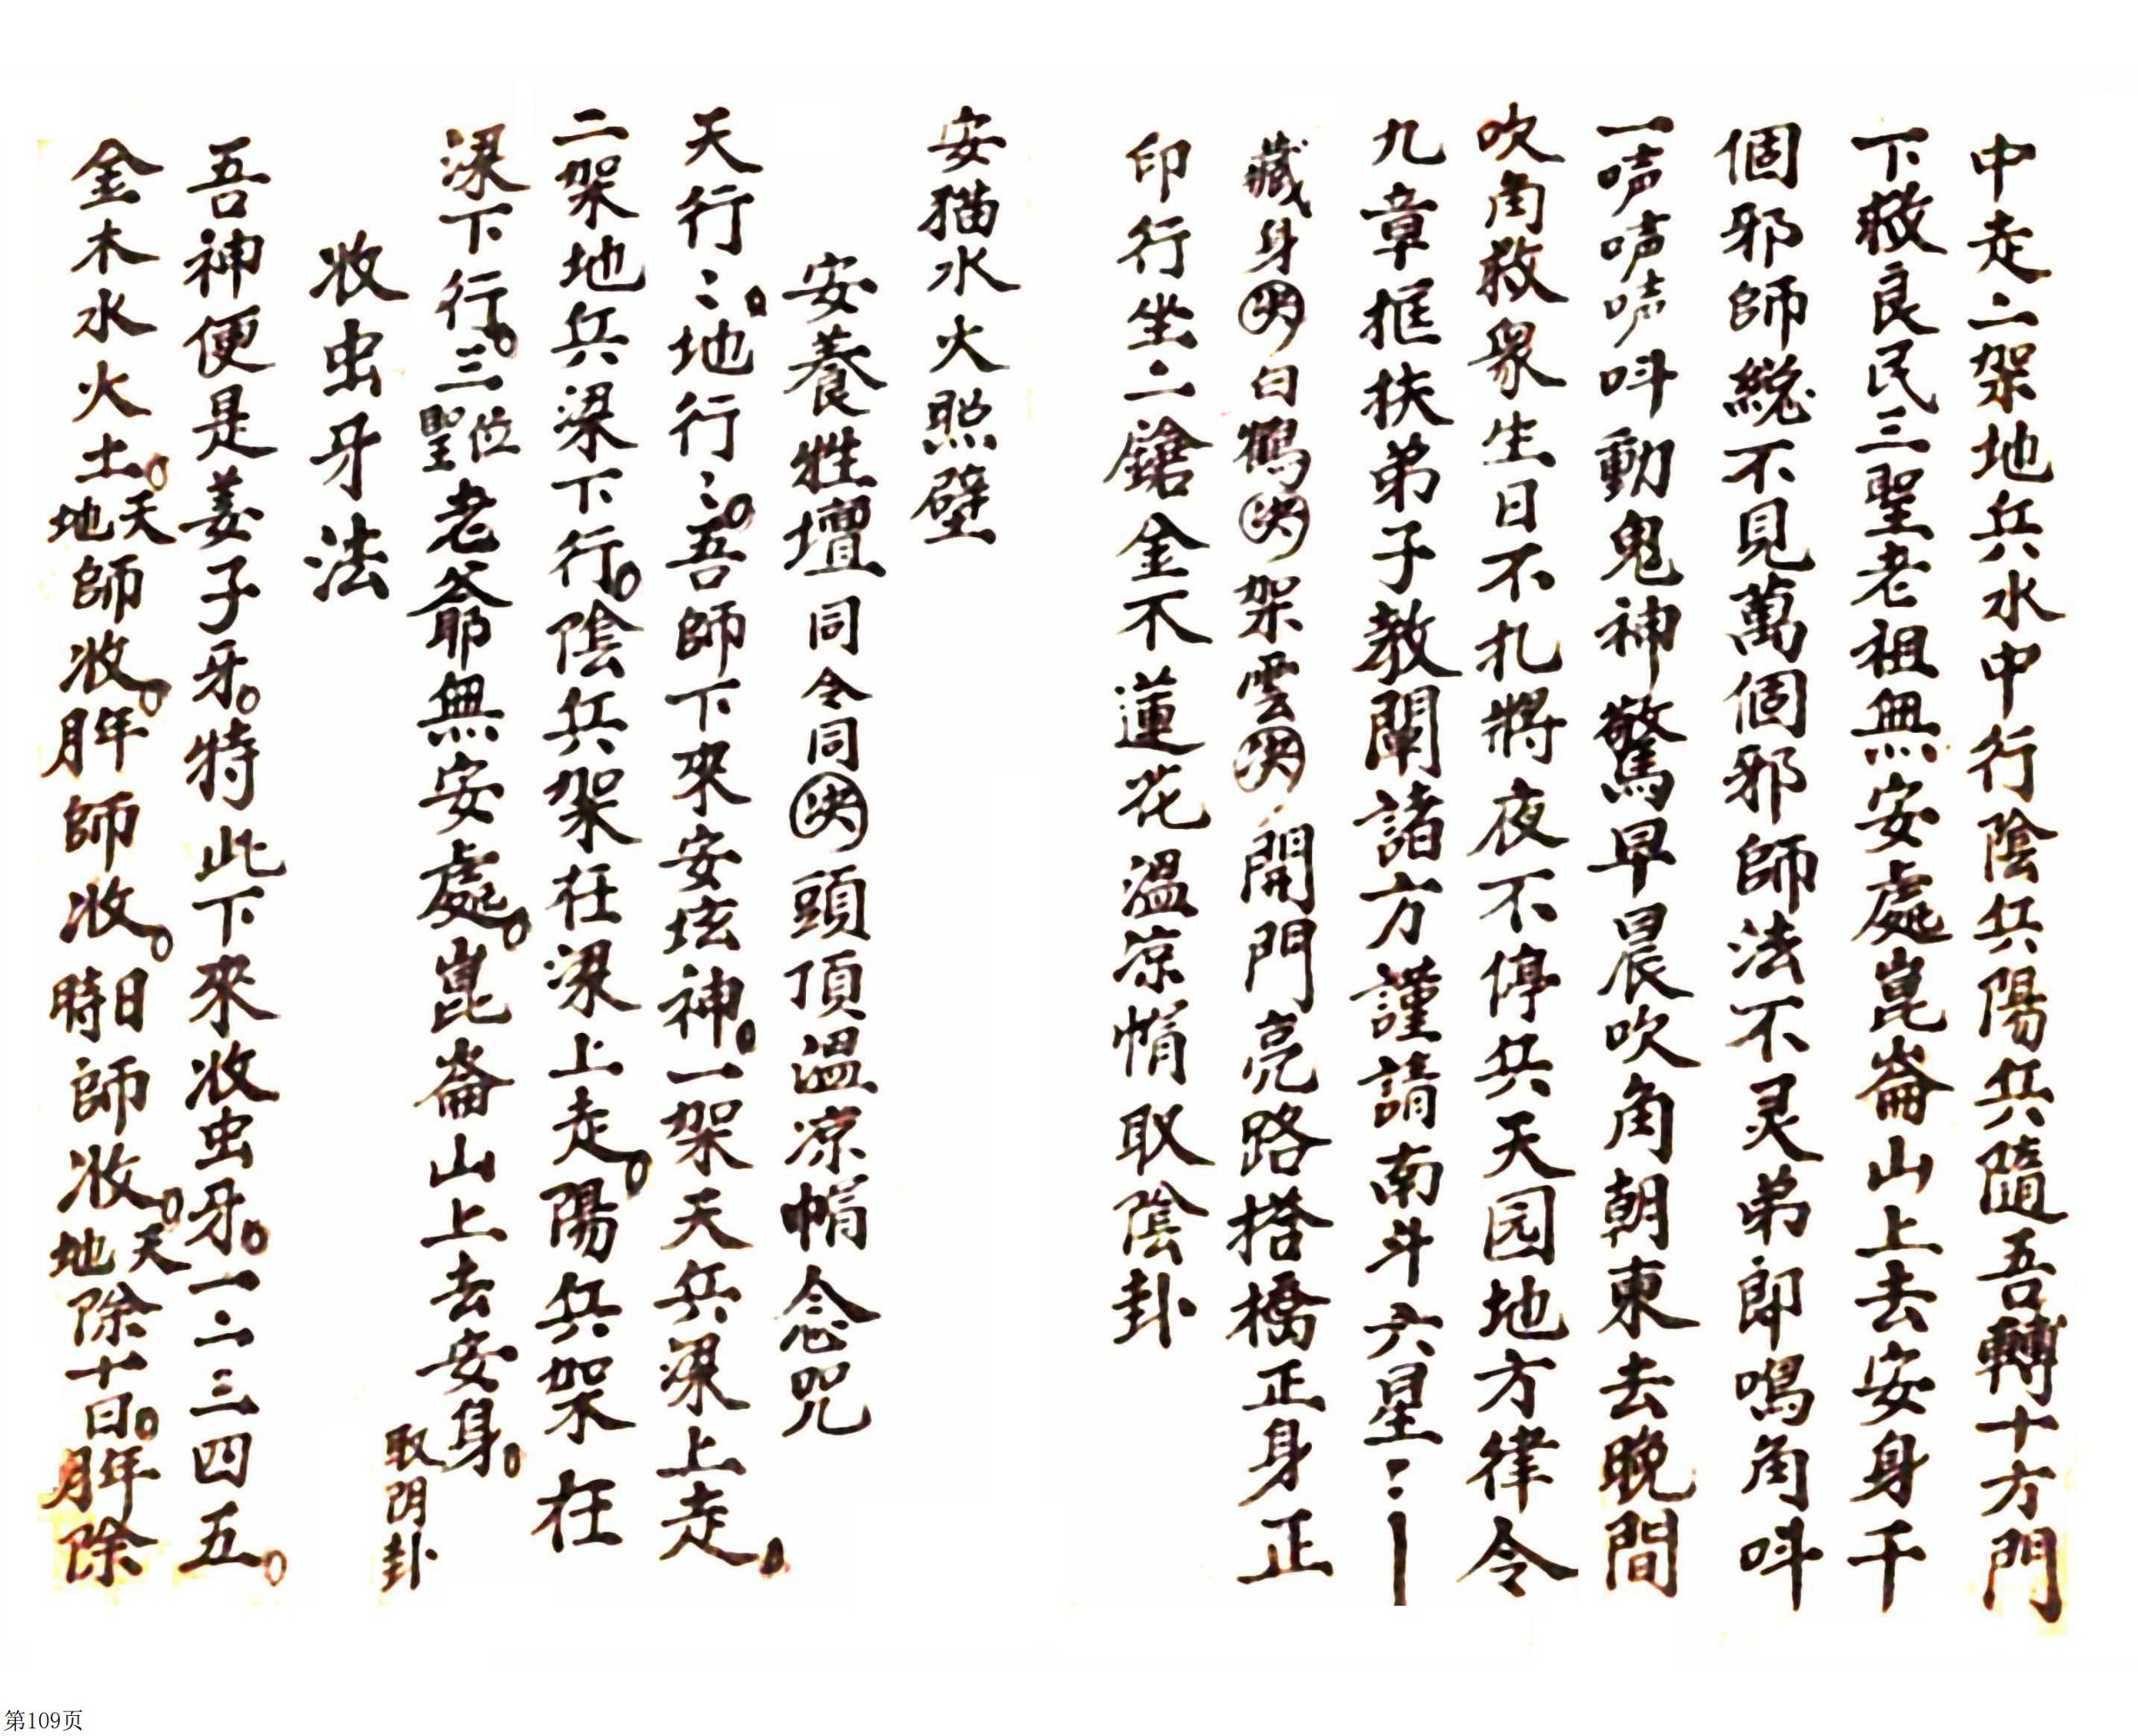 中走二架地兵水中行陰兵陽兵隨吾轉十方門
下救良民三聖老祖無安處崑崙山上去安身千
個邪師総不見萬個邪師法不灵弟郎鳴角呌
一唥唥唥呌動鬼神驚早晨吹角朝東去晚間
吹角救衆生日不扎將夜不停兵天园地方律令
九章框扶弟子教闡諸方謹請南斗六星⋮｜
藏身㊋白鶴架雲開門亮路搭橋正身正
印行坐二鎗金不蓮花溫凉帽取陰卦
安猫水火照壁
安養牲壇同令同頭頂溫凉帽念咒
天行〻。地行〻。吾師下來安坛神。一架天兵梁上走。
二架地兵梁下行。陰兵架在梁上走。陽兵架在
梁下行。三位聖老爺無安處。崑崙山上去安身。取阴卦
收虫牙法
吾神便是姜子牙。特此下來收虫牙。一二三四五。
金木水火土。天地師收。年月師收。日時師收。天地除十日。年月除